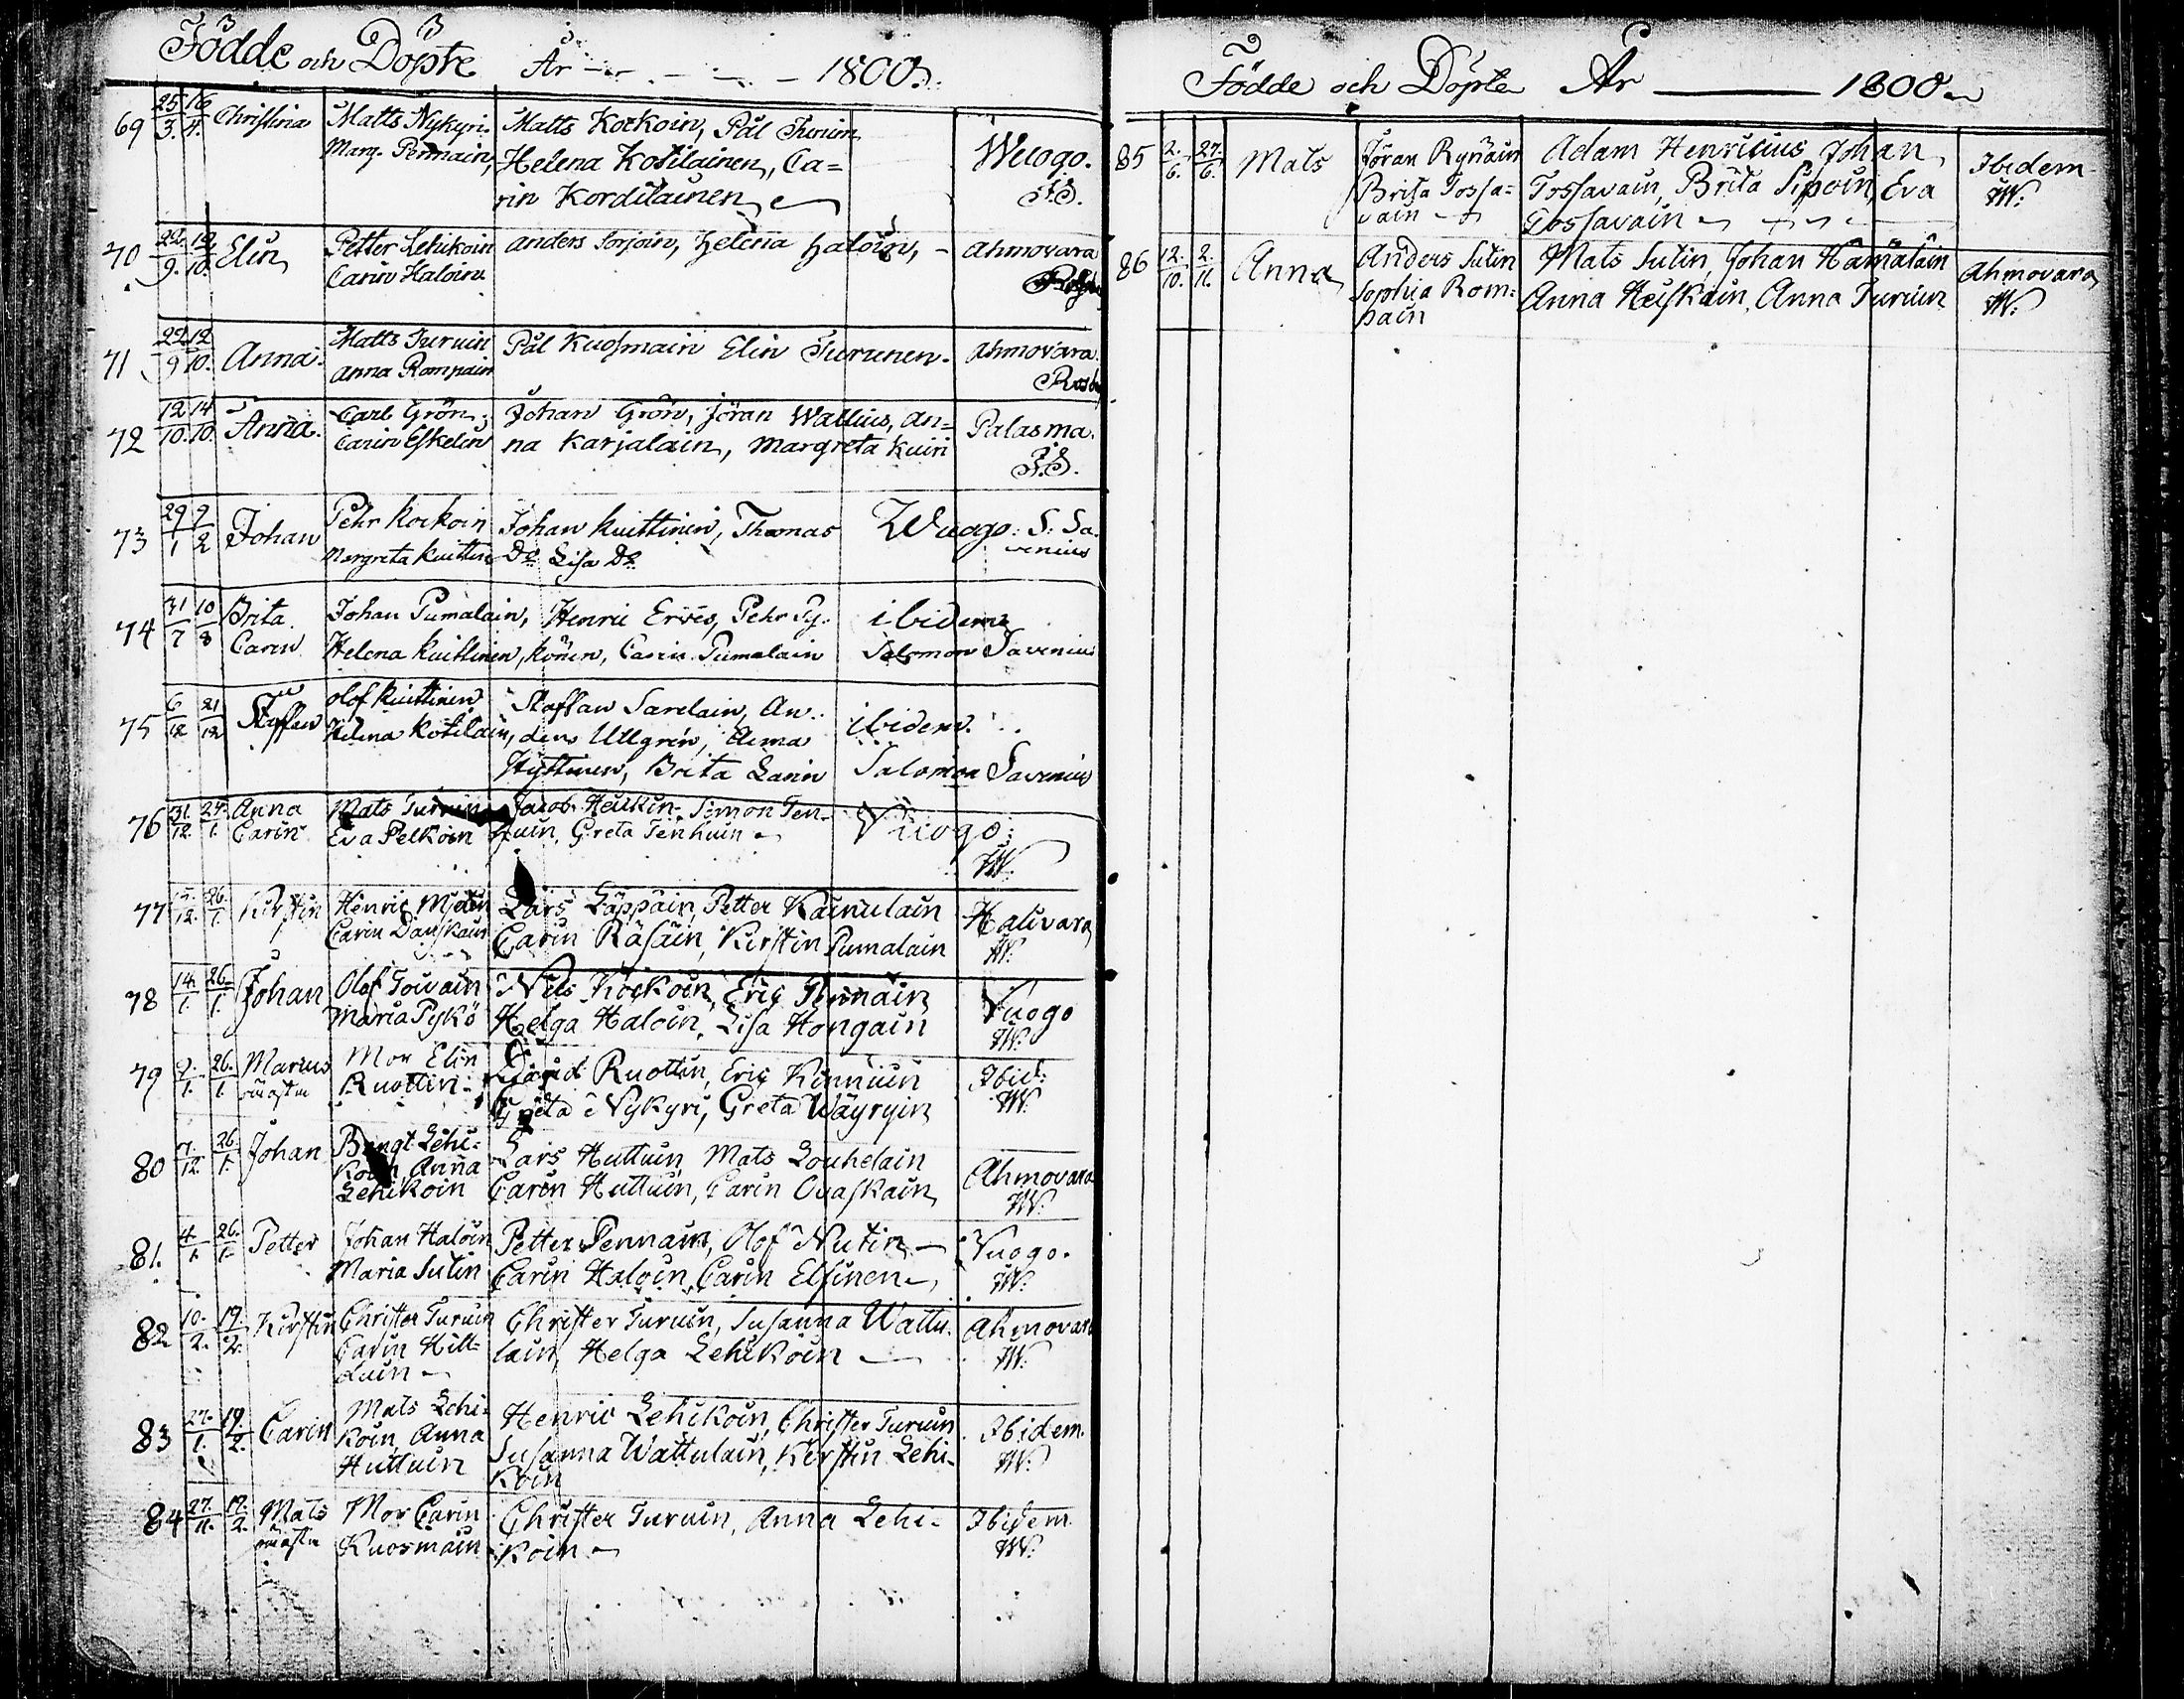 Födde och Döpte År - - - - 1800.
69 25/3. 16/4. Christina Matts Nykyri. Matts Kockoin, Pål Turuin
Marg. Pennain, Helena Kotilainen, Ca= Wuogo.
rin Kordilainen J.S.
70 22/9. 12/10. Elin Petter Lehikoin Anders Sorjoin, Helena Haloin, - Ahmovara
Carin Haloin
71 22/9 12/10. Anna. Matts Turuin Pål Kuosmain Elin Turunen. Ahmovara.
Anna Rompain
72 12/10. 14/10. Anna. Carl Grön. Johan Grön, Jöran Wallius, An= Palasma.
Carin Eskelin na Karjalain, Margreta Kuiri J.S.
73 29/1 9/2 Johan Pehr Kockoin Johan Kuittinen, Thomas Wuogo: S: Sa.
Margreta Kuittinen Do Lisa Do venius
74 31/7 10/8 Brita Johan Pumalain, Henric Erves, Pehr Py. ibidem
Caren Helena Kuittinen, könen, Carin Pumalain Salomon Savenius
75 6/12 21/12 Staffan Olof Kuittinen Staffan Sarelain, An.. ibidem.
Helena Kotilain, ders Ullgren, Anna
Hyttinen, Brita Larin Salomon Savenius
76 31./12. 24./1. Anna Mats Turuin Jacob Heiskin. Simon Ten-
Carin Eva Pelkoin huin, Greta Tenhuin Vuogo:
W.
77 15./12. 26./1. Kirstin Henric Lars Läppäin, Petter Kainulain Halivara
Carin Danskain Carin Räsäin, Kirstin Pumalain W.
78 14./1. 26./1. Johan Olof Toivain Nils Kockoin, Eric Pennain Vuogo
Maria Pykö Helga Haloin, Lisa Hongain W.
79 9./1. 26./1. Marcus Mor Elin David Ruottin, Eric Kinnuin Ibid:
oäkta Ruottin. Greta Nykyri, Greta Wäyryin W.
80 7./12. 26./1. Johan Bengt Lehi= Lars Huttuin Mats Louhelain
koin, Anna Carin Huttuin, Carin Ovaskain Ahmovara
Lehikoin W.
81. 4./1. 26./1. Petter Johan Haloin Petter Pennain, Olof Nutin - Vuogo.
Maria Sutin Carin Haloin, Carin Elsinen W.
82 10./2. 19./2. Kirstin Christer Turuin Christer Turuin, Susanna Wattu. Ahmovara
Carin Hilt= lain, Helga Lehikoin W.
tuin
83 27./1. 19./2. Carin Mats Lehi= Henric Lehikoin, Christer Turuin Ibidem.
koin, Anna Susanna Wattulain, Kirstin Lehi- W.
Huttuin koin
84 27./11. 19./2. Mats Mor Carin Christer Turuin, Anna Lehi- Ibidem.
oäkta Kuosmain koin W.
Födde och Döpte År 1800
85 2./6. 27./6. Mats Jöran Rynäin Adam Henricius Johan Ibidem
Brita Tossa= Tossavain, Brita Sipoin, Eva W.
vain Tossavain
86 12./10. 2./11. Anna Anders Sutin Mats Sutin, Johan Hämäläin Ahmovara
Sophia Rom= Anna Heiskain, Anna Turuin W.
pain